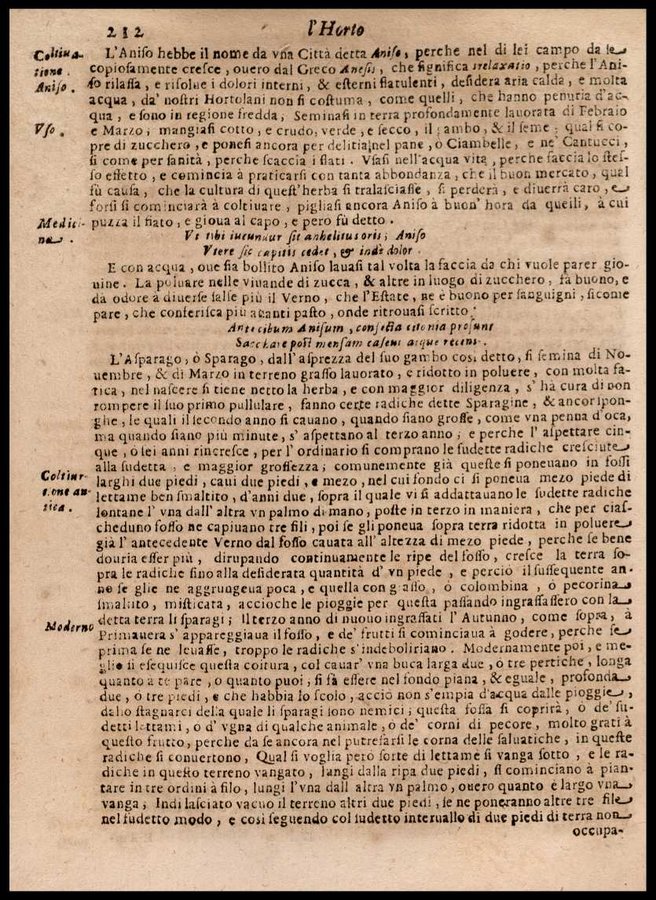 212 l'Horto
Coltiua-
tione.
Aniso.
L'Aniso hebbe il nome da vna Città detta Aniso, perche nel di lei campo da se
copiosamente cresce, ouero dal Greco Anesis, che significa relaxatio, perche l'Ani-
so rilassa, e risolue i dolori interni, & esterni flatulenti, desidera aria calda, e molta
acqua, da' nostri Hortolani non si costuma, come quelli, che hanno penuria d'ac-
qua, e sono in regione fredda, Seminasi in terra profondamente lauorata di Febraio
Vso.
e Marzo; mangiasi cotto, e crudo, verde, e secco, il gambo, & il seme; qual si co-
pre di zucchero, e ponesi ancora per delitia nel pane, ò Ciambelle, e ne' Cantucci,
si come per sanità, perche scaccia i flati. Vsasi nell'acqua vita, perche faccia lo stes-
so effetto, e comincia à praticarsi con tanta abbondanza, che il buon mercato, qual
fù causa, che la cultura di quest'herba si tralasciasse, si perderà, e diuerrà caro, e
forsi si cominciarà à coltiuare, pigliasi ancora Aniso à buon' hora da quelli, à cui
Medici-
na.
puzza il fiato, e gioua al capo, e pero fù detto.
Vt tibi iucundus sit anhelitus oris; Aniso
Vtere sic capitis cedet, & indè dolor.
E con acqua, oue sia bollito Aniso lauasi tal volta la faccia da chi vuole parer gio-
uine. La poluare nelle viuande di zucca, & altre in luogo di zucchero, fà buono, e
dà odore à diuerse salse più il Verno, che l'Estate, ne è buono per sanguigni, sicome
pare, che conferisca più auanti pasto, onde ritrouasi scritto
Ante cibum Anisum, confecta citonia prosunt
post mensam
L'Asparago, ò Sparago, dall' asprezza del suo gambo cosi detto, si semina di No-
uembre, & di Marzo in terreno grasso lauorato, e ridotto in poluere, con molta fa-
tica, nel nascere si tiene netto la herba, e con maggior diligenza, s' hà cura di non
rompere il suo primo pullulare, fanno certe radiche dette Sparagine, & ancor spon-
ghe, le quali il secondo anno si cauano, quando siano grosse, come vna penna d'oca,
ma quando siano più minute, s' aspettano al terzo anno; e perche l' aspettare cin-
que, ò sei anni rincresce, per l' ordinario si comprano le sudette radiche cresciute
Coltiua-
tione an-
tica.
alla sudetta, e maggior grossezza; comunemente già queste si poneuano in fossi
larghi due piedi, caui due piedi, e mezo, nel cui fondo ci si poneua mezo piede di
lettame ben smaltito, d'anni due, sopra il quale vi si addattauano le sudette radiche
lontane l' vna dall' altra vn palmo di mano, poste in terzo in maniera, che per cias-
cheduno fosso ne capiuano tre fili, poi se gli poneua sopra terra ridotta in poluere
già l' antecedente Verno dal fosso cauata all' altezza di mezo piede, perche se bene
douria esser più, dirupando continuamente le ripe del fosso, cresce la terra so-
pra le radiche fino alla desiderata quantità d' vn piede, e perciò il sussequente an-
no se glie ne aggrungeua poca, e quella con grasso, ò colombina, ò pecorina
smaltito, misticata, accioche le pioggie per questa passando ingrassassero con la
Moderno
detta terra li sparagi; Il terzo anno di nuouo ingrassati l' Autunno, come sopra, à
Primauera s' appareggiaua il fosso, e de' frutti si cominciaua à godere, perche se
prima se ne leuasse, troppo le radiche s' indeboliriano. Modernamente poi, e me-
glio si esequisce questa coitura, col cauar' vna buca larga due, ò tre pertiche, longa
quanto à te pare, o quanto puoi; si fà essere nel fondo piana, & eguale, profonda
due, ò tre piedi, e che habbia lo scolo, acciò non s'empia d'acqua dalle pioggie,
dallo stagnarci della quale li sparagi sono nemici; questa fossa si coprirà, ò de' su-
detti lettami, ò d' vgna di qualche animale, ò de' corni di pecore, molto grati à
questo frutto, perche da se ancora nel putrefarsi le corna delle saluatiche, in queste
radiche si conuertono, Qual si voglia però sorte di lettame si vanga sotto, e le ra-
diche in questo terreno vangato, lungi dalla ripa due piedi, si cominciano à pian-
tare in tre ordini à filo, lungi l'vna dall altra vn palmo, ouero quanto è largo vna
vanga; Indi lasciato vacuo il terreno altri due piedi, se ne poneranno altre tre file
nel sudetto modo, e cosi seguendo col sudetto interuallo di due piedi di terra non
occupa-